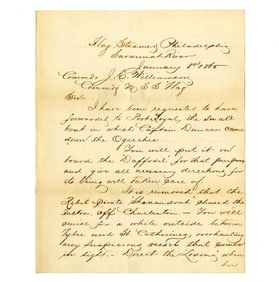 Flag Steamer Philadelphia
Savannah River
January 1st 1865
Commdr J. C. Williamson
Commdg U S S Flag
Sir:
I have been requested to have
forwarded to Port Royal, the small
boat in which Captain Duncan came
down the Ogeechee
You will put it on
board the "Daffodil" for that purpose
and give all necessary directions for
its being well taken care of
It is rumored that the
Rebel Pirate Shenandoah chased the
off Charleston - You will
cruise for a while outside between
Tybee and St Catherines, overhauling
any suspicious vessels that comes
in sight. Direct the Losona, when
her